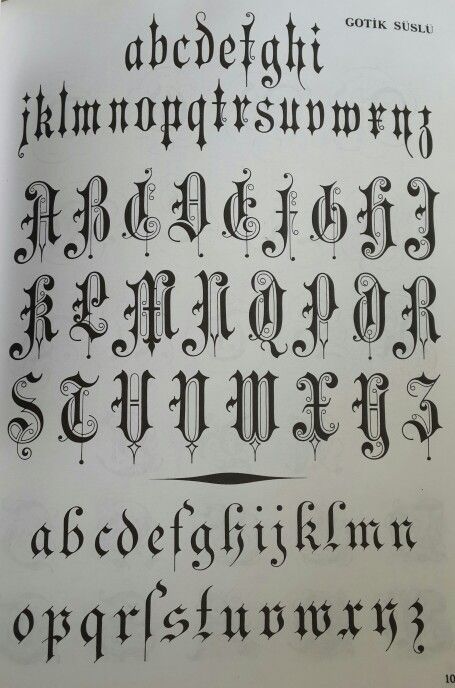 GOTİK SÜSLÜ
abcdefghi
jklmnopqtrsuvwxyz
ABCDEFGHJ
KLMNQPOR
STUVWXYZ
abcdefghijklmn
opqrſstuvwxyz
10